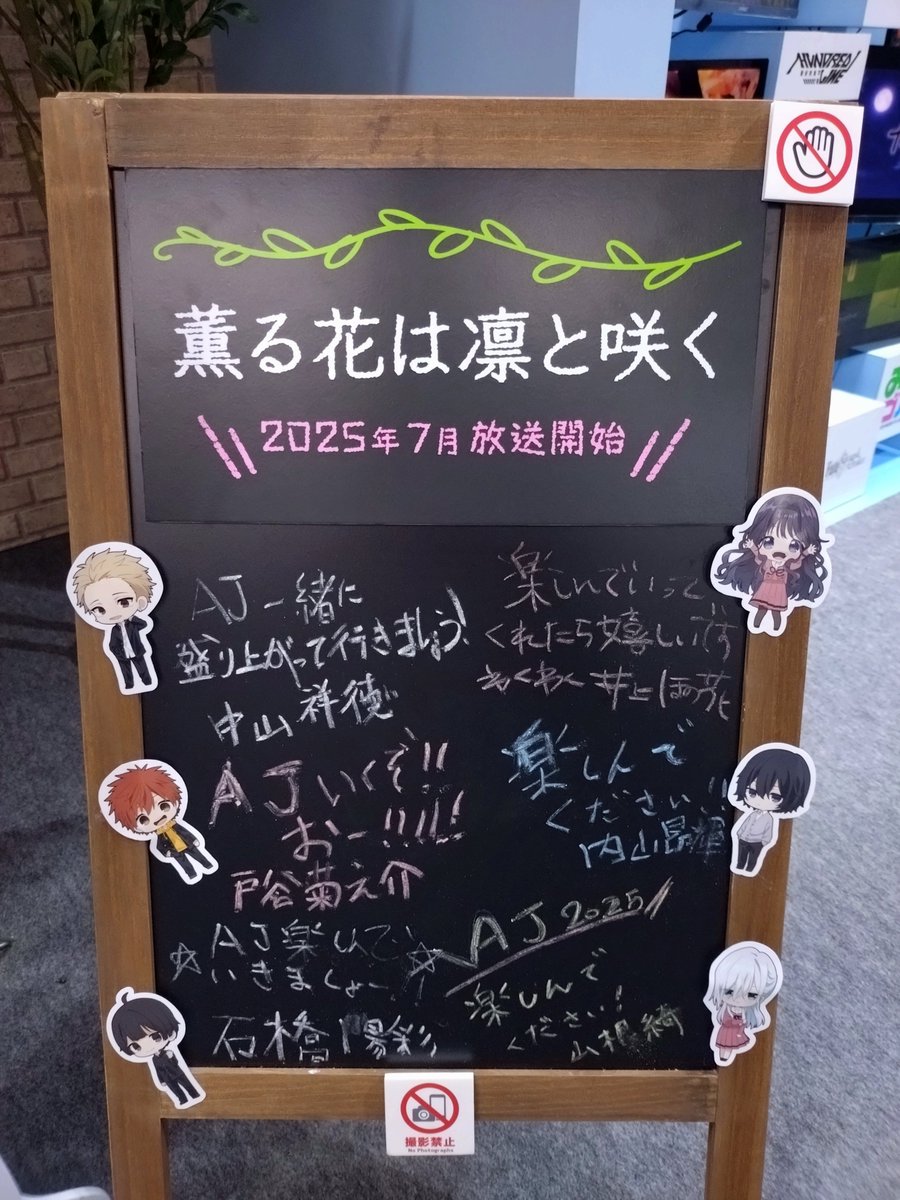 HUNDRED
LINE
薫る花は凛と咲く
2025年7月放送開始
AJ一緒に
盛り上がって行きましょう!
中山祥徳
楽しんでいって
くれたら嬉しいです
わくわく 井上ほの花
AJいくぞ!!
おー!!!!!
戸谷菊之介
楽しんで
ください!!
内山昂輝
☆AJ楽しんで☆
いきましょー!
石橋陽彩
AJ 2025!
楽しんで
ください!
山根綺
撮影禁止
No Photographs